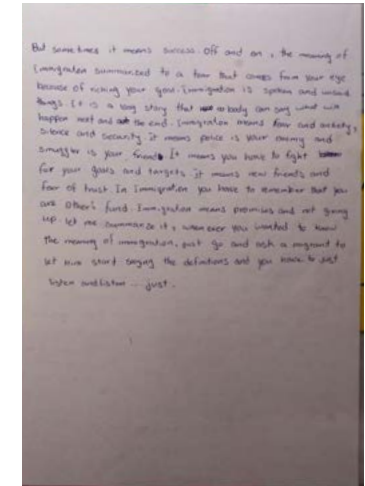 But sometimes it means success. Off and on, the meaning of
Immigration summarized to a tear that comes from your eye
because of risking your goal. Immigration is spoken and unsaid
things. It is a long story that no body can say what will
happen next and at the end. Immigration means fear and anxiety,
silence and security it means police is your enemy and
smuggler is your friend. It means you have to fight
for your goals and targets it means new friends and
fear of trust. In Immigration you have to remember that you
are other's fund. Immigration means promises and not giving
up. let me summarize it, when ever you wanted to know
the meaning of immigration, just go and ask a migrant to
let him start saying the definitions and you have to just
listen and listen ... just.